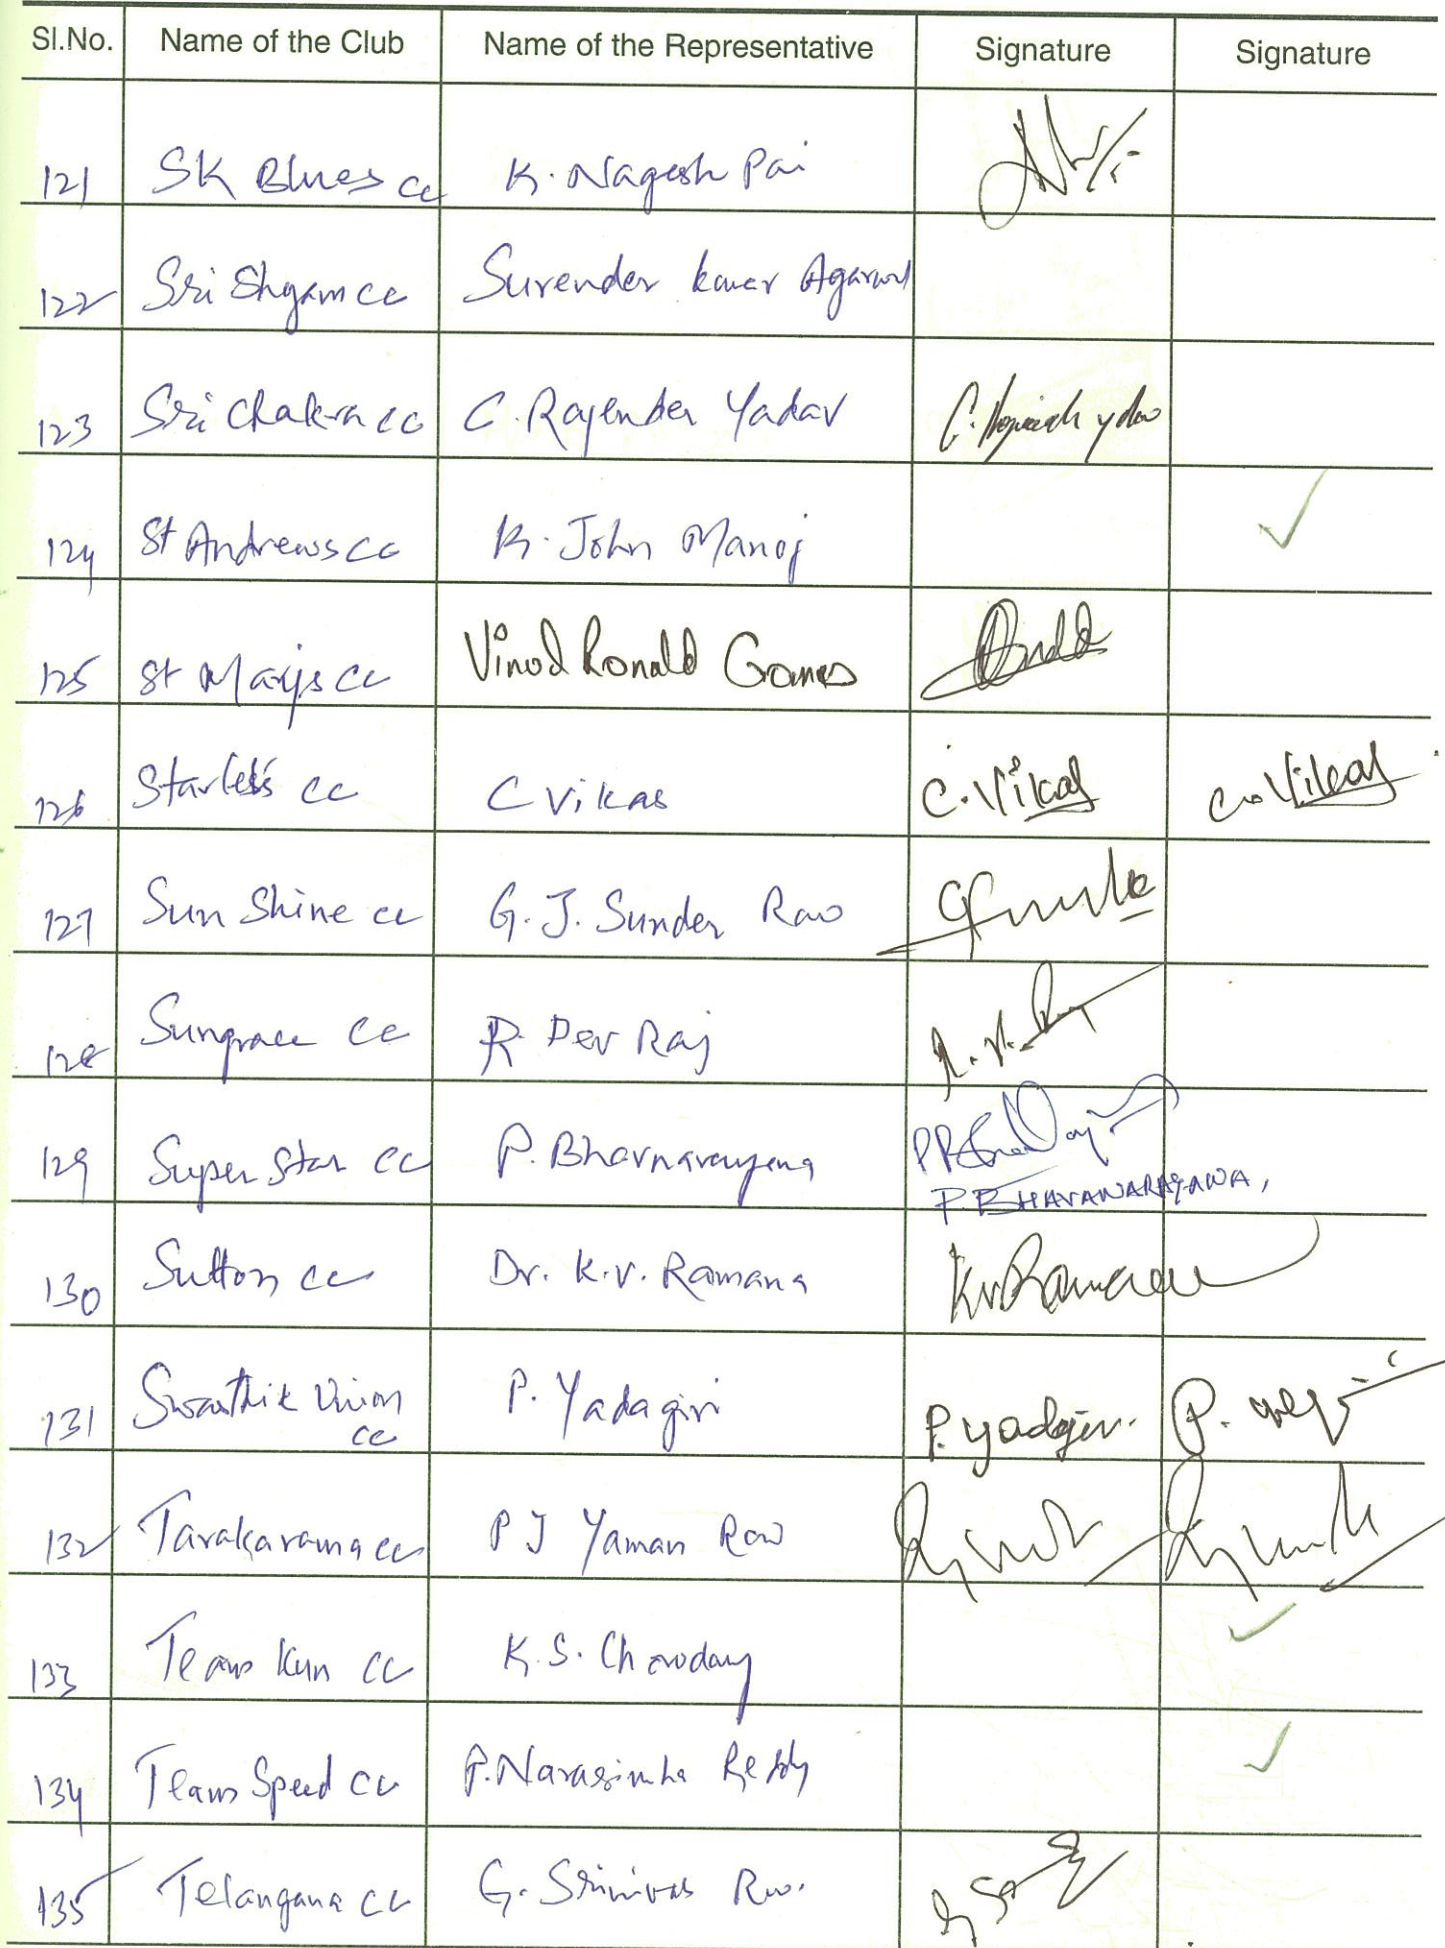 Sl.No. Name of the Club Name of the Representative Signature Signature
121 SK Blues cc K. Nagesh Pai
122 Sri Shyam cc Surender kumar Agarwal
123 Sri Chakra cc C. Rajender Yadav
124 St Andrews cc K. John Manoj ✓
125 St Marys cc Vinod Ronald Gomes
126 Starlets cc C Vikas C. Vikas C. Vikas
127 Sun Shine cc G. J. Sunder Rao
128 Sungrace cc R. Dev Raj
129 Super Star cc P. Bhavnarayana
P. BHAVANARAYANA,
130 Sutton cc Dr. K.V. Ramana KvRamana
131 Swasthik Union P. Yadagiri P. Yadgiri.
cc
132 Tarakarama cc P J Yaman Rao
133 Team Kun cc K. S. Chowdary ✓
134 Team Speed cc P. Narasimha Reddy ✓
135 Telangana cc G. Srinivas Rao.